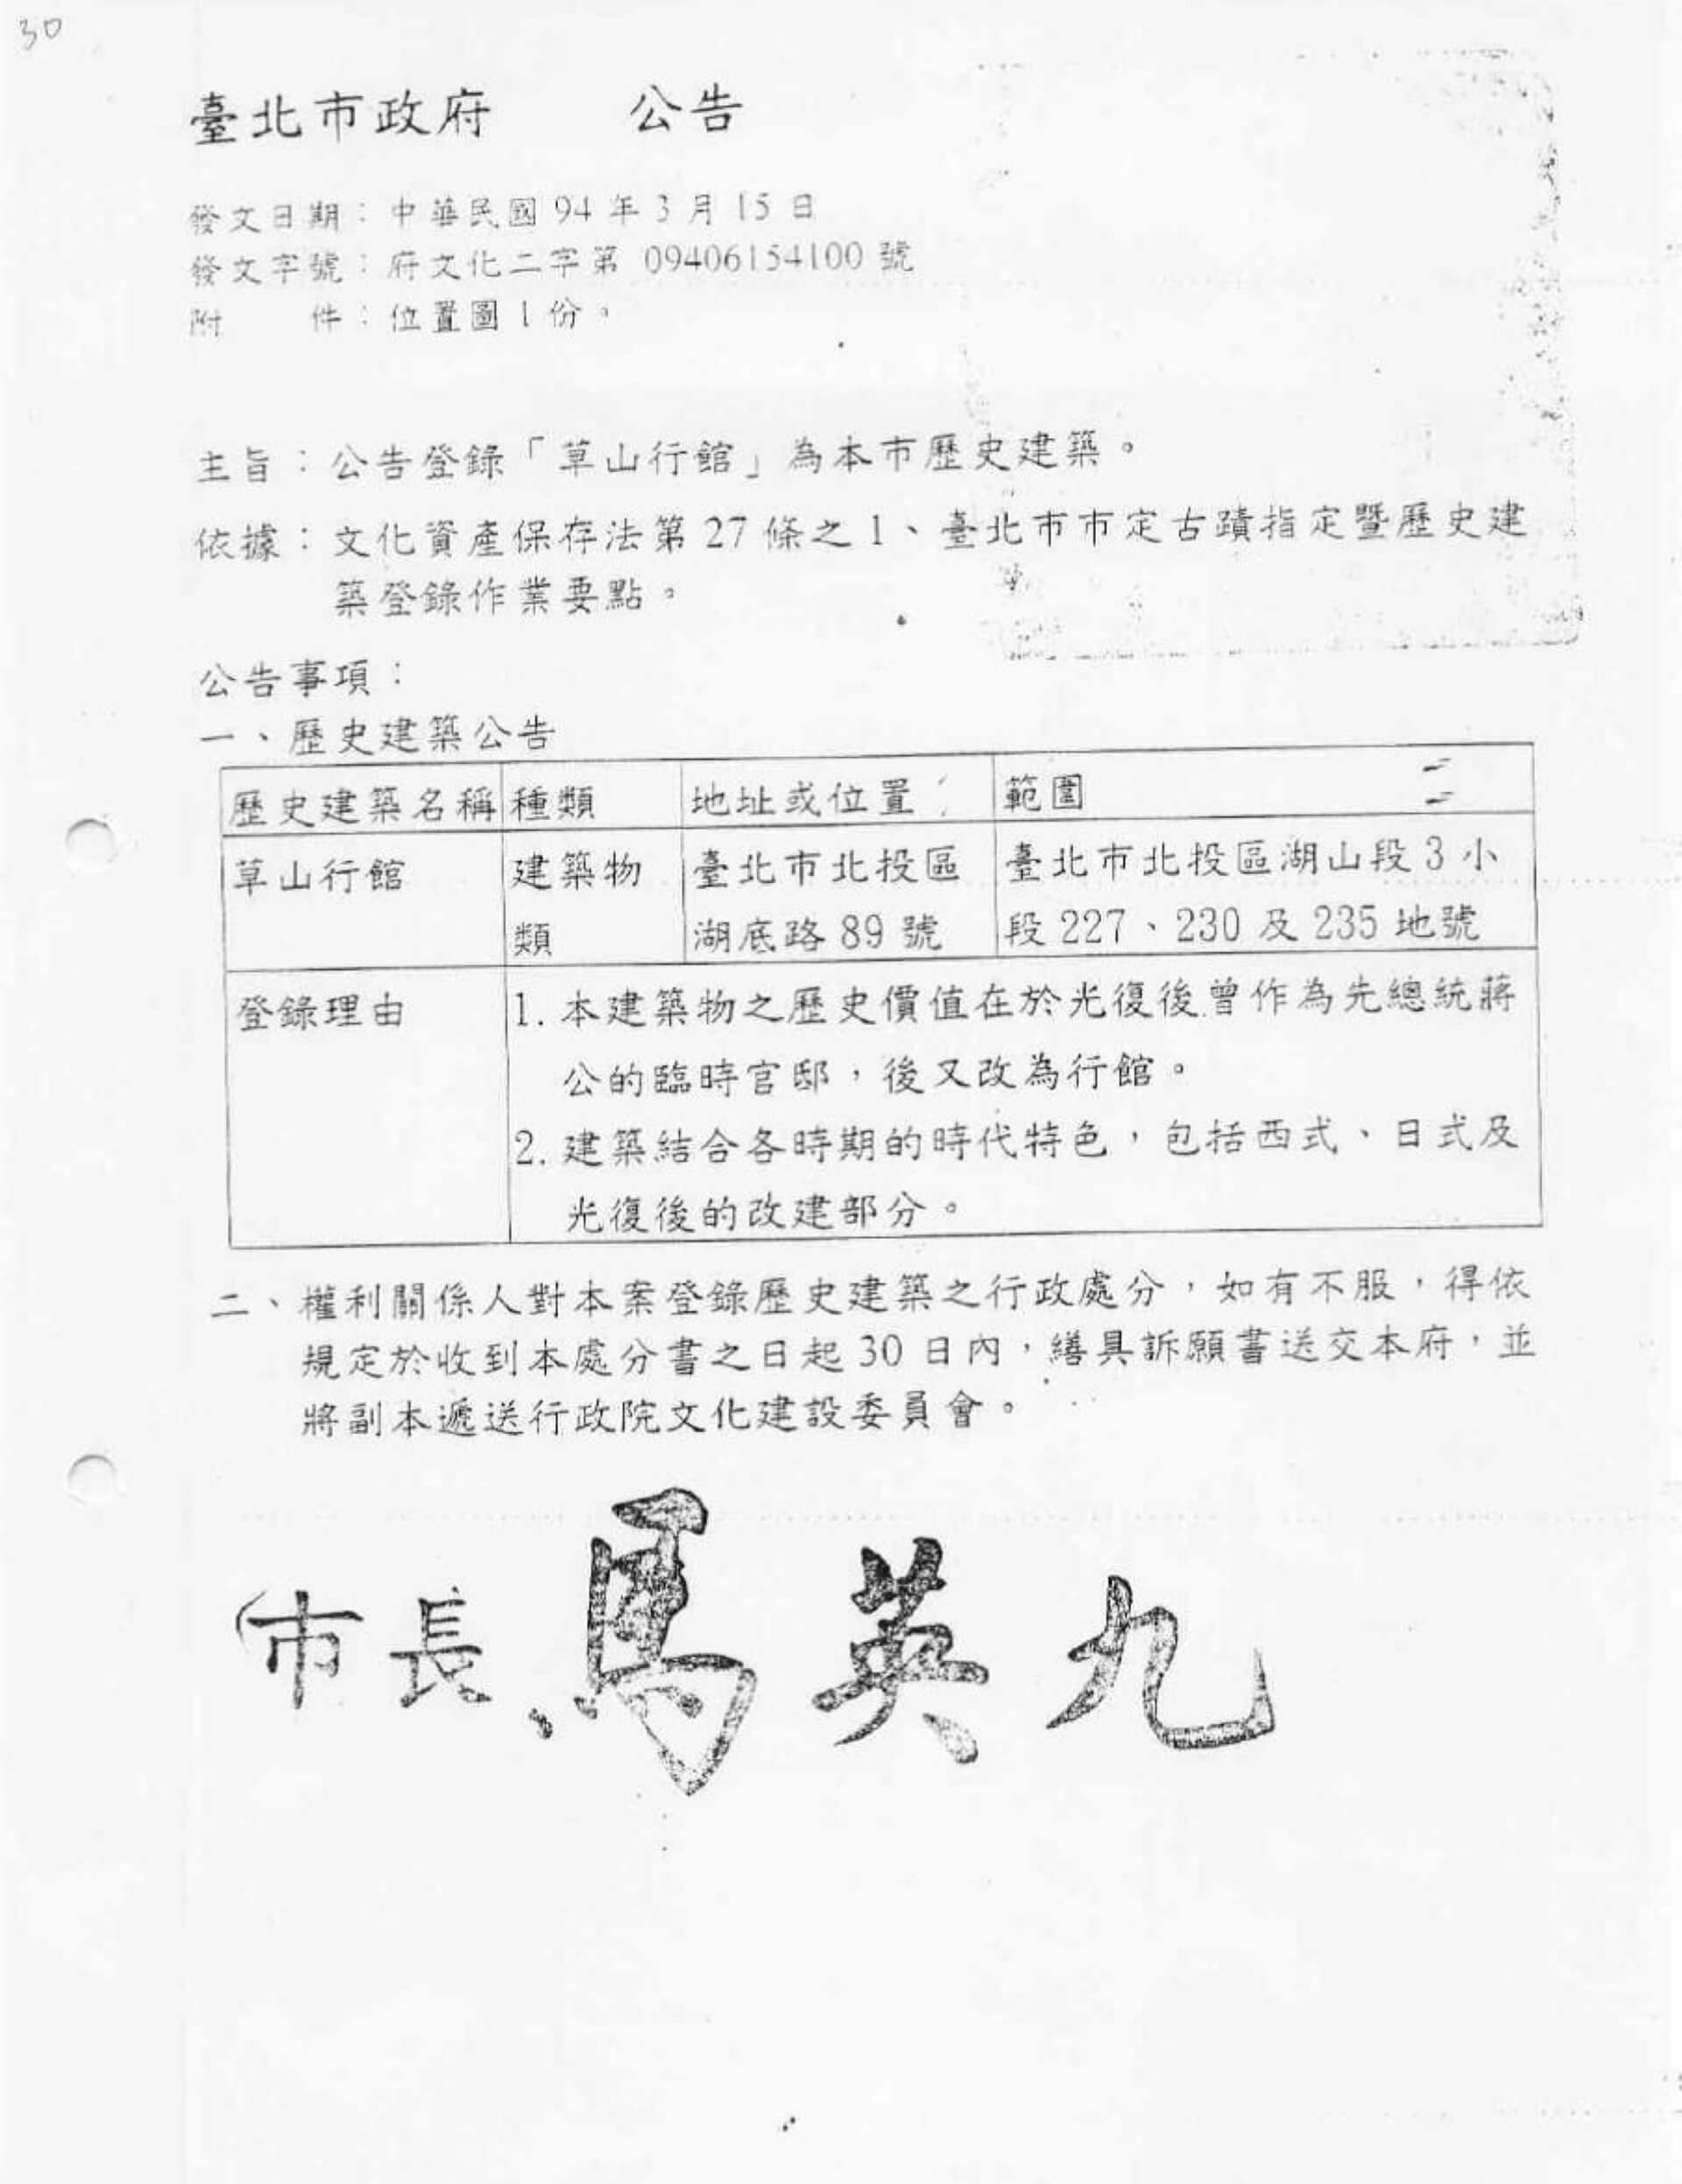 30
臺北市政府 公告
發文日期：中華民國 94 年 3 月 15 日
發文字號：府文化二字第 09406154100 號
附 件：位置圖 1 份。
主旨：公告登錄「草山行館」為本市歷史建築。
依據：文化資產保存法第 27 條之 1、臺北市市定古蹟指定暨歷史建
築登錄作業要點。
公告事項：
一、歷史建築公告
歷史建築名稱 種類 地址或位置 範圍
草山行館 建築物 臺北市北投區 臺北市北投區湖山段 3 小
類 湖底路 89 號 段 227、230 及 235 地號
登錄理由 1. 本建築物之歷史價值在於光復後曾作為先總統蔣
公的臨時官邸，後又改為行館。
2. 建築結合各時期的時代特色，包括西式、日式及
光復後的改建部分。
二、權利關係人對本案登錄歷史建築之行政處分，如有不服，得依
規定於收到本處分書之日起 30 日內，繕具訴願書送交本府，並
將副本遞送行政院文化建設委員會。
市長 馬英九